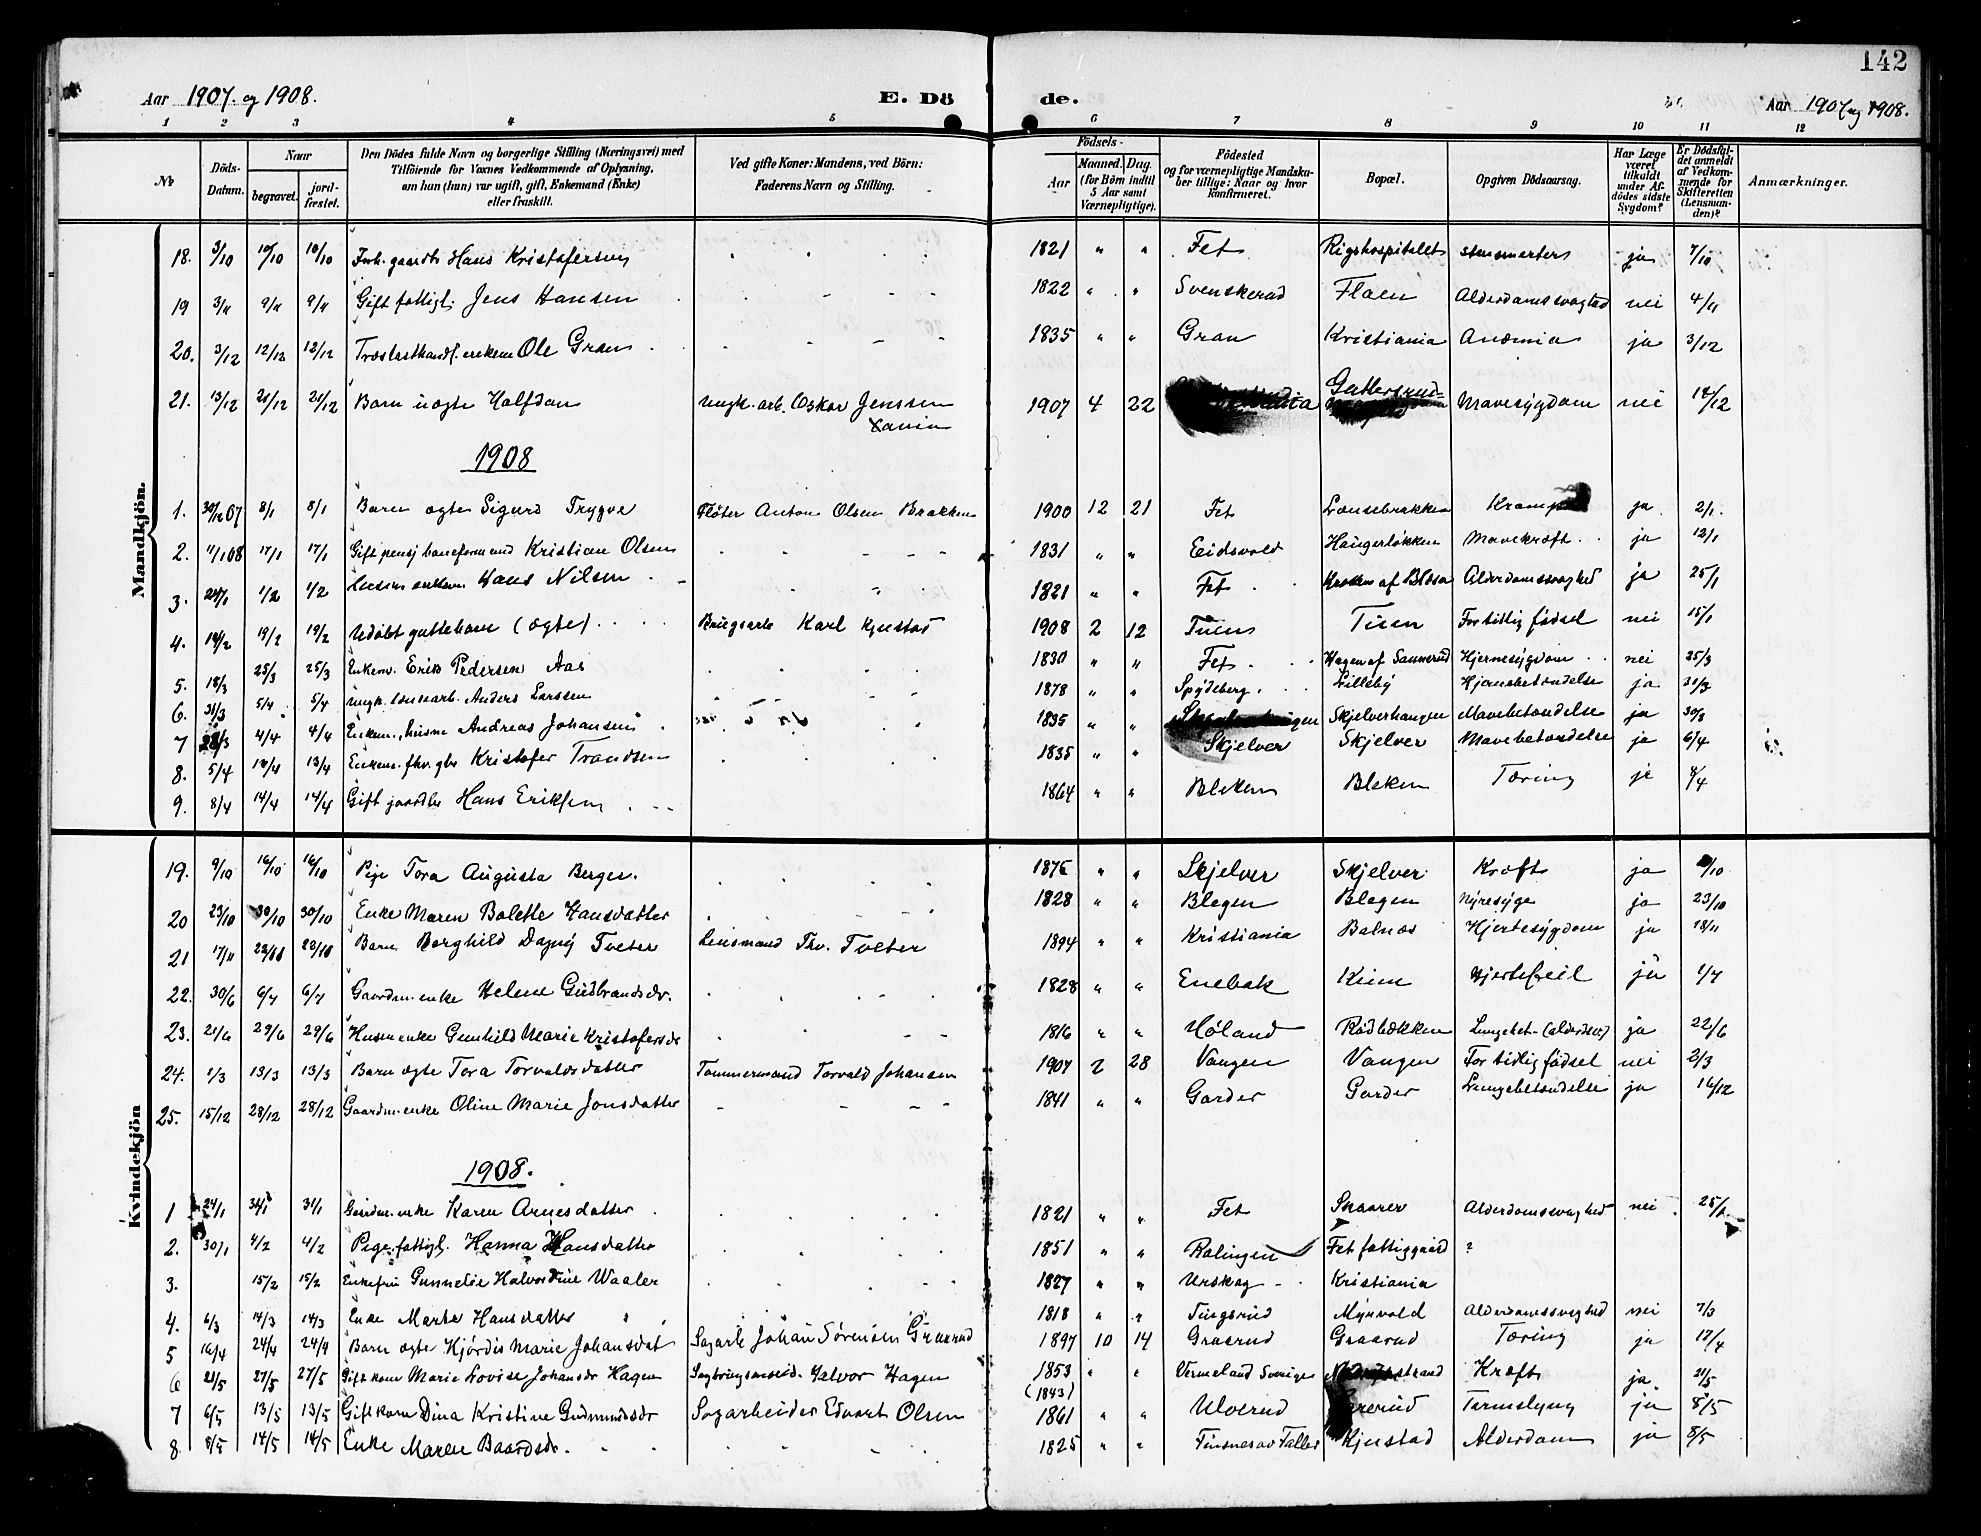 142
Aar 1907. og 1908. E. Dö de. Aar 1907 og 1908.
1 2 3 4 5 6 7 8 9 10 11 12
No
Döds-Datum.
Naar
begravet.
jord-fæstet.
Den Dödes fulde Navn og borgerlige Stilling (Næringsvei) med
Tilföiende for Voxnes Vedkommende af Oplysning,
om han (hun) var ugift, gift, Enkemand (Enke)
eller fraskilt.
Ved gifte Koner: Mandens, ved Börn:
Faderens Navn og Stilling.
Födsels-
Aar
Maaned. Dag.
(for Börn indtil
5 Aar samt
Værnepligtige).
Födested
og for værnepligtige Mandska-
ber tillige: Naar og hvor
konfirmeret.
Bopæl.
Opgiven Dödsaarsag.
Har Læge
været
tilkaldt
under Af-
dödes sidste
Sygdom?
Er Dödsfal-
det anmeldt
af Vedkom-
mende for
Skifteretten
(Lensman-
den)?
Anmærkninger.
Mandkjön.
18. 3/10 10/10 10/10 Hans Kristofersen 1821 " " Fet Rigshospitalet ja 7/10
19 3/11 9/11 9/11 Gift fattigl. Jens Hansen 1822 " " Svenskerud Flaen Alderdomssvaghed nei 4/11
20. 3/12 12/12 12/12 Ole Gran 1835 " " Gran Kristiania Anæmia ja 3/12
21. 13/12 21/12 21/12 Barn uægte Halfdan ungk. arb. Oskar Jenssen Xania 1907 4 22 Gullersrud Mavesygdom nei 14/12
1908
1. 30/12 07 8/1 8/1 Barn ægte Sigurd Trygve Flöter Anton Olsen Brakken 1900 12 21 Fet Lænsebrakken ja 2/1.
2. 11/1 08 17/1 17/1 Gift pensj baneformand Kristian Olsen 1831 " " Eidsvold Haugerløkken Mavekræft ja 12/1
3. 24/1 1/2 1/2 Hans Nilsen 1821 " " Fet Alderdomssvaghed ja 25/1
4. 14/2 19/2 19/2 Udöbt guttebarn (ægte) Brugsarb Karl Kjustad 1908 2 12 Tuen Tuen For tidlig födsel nei 15/1
5. 18/3 25/3 25/3 Enkem. Erik Pedersen Aas 1830 " " Fet Hagen af Sannerud Hjernesygdom nei 25/3
6. 31/3 5/4 5/4 ungk. lænsearb. Anders Larssen 1878 " " Spydeberg Lilleby Hjernebetændelse ja 31/3
7 28/3 4/4 4/4 Enkem., husm Andreas Johansen 1835 " " Skjelverhaugen Mavebetændelse ja 30/3
8. 5/4 14/4 13/4 Enkem. fhv. gbr Kristofer Trondsen 1835 " " Skjelver Skjelver Mavebetændelse ja 6/4
9. 8/4 14/4 14/4 Gift gaardbr Hans Eriksen 1864 " " Bleken Bleken Tæring ja 9/4
Kvindekjön
19. 9/10 16/10 16/10 Pige Tora Augusta Berger. Skjelver Skjelver Kræft ja
20 23/10 30/10 30/10 Enke Maren Bolette Hansdatter 1828 " " Blegen Blegen Nyresyge ja 23/10
21 17/11 Barn Borghild Dagny Tveter Lensmand Thv. Tveter 1894 " " Kristiania Balnæs Hjertesygdom ja 18/11
22. 30/6 6/7 6/7 Gaardm. enke Helene Gudbrandsdr. 1828 " " Enebak Kium Hjertefeil ja 1/7
23. 21/6 29/6 29/6 Husm enke Gunhild Marie Kristofersdr 1816 " " Höland Rödbækken ja 22/6
24. 1/3 13/3 13/3 Barn ægte Tora Torvaldsdatter Tømmermand Torvald Johansen 1907 2 28 Vangen Vangen For tidlig födsel nei 2/3
25. 15/12 28/12 28/12 Gaardm. enke Oline Marie Jonsdatter 1841 " " Garder Garder Lungebetændelse ja 16/12
1908.
1 24/1 31/1 31/1 Gaardm. enke Karen Arnesdatter 1821 " " Fet Skaarer Alderdomssvaghed nei 25/1
2. 30/1 4/2 4/2 Pige. fattigl. Hanna Hansdatter 1851 " " Rælingen Fet fattiggaard ?
3. 15/2 15/2 Enkefru Waaler 1827 " " Urskog Kristiania
4. 6/3 14/3 14/3 Enke Marte Hansdatter 1818 " " Tingsrud Myrvold Alderdomssvaghed nei 7/3
5 16/4 24/4 24/4 Barn ægte Hjördis Marie Johansdat Sagarb Johan Sörensen Graarud 1897 10 14 Graarud Graarud Tæring ja 17/4
6 21/5 27/5 27/5 Gift kone Marie Lovise Johansdr Hagen Halvor Hagen 1853 (1843) " " Vermeland Sverige Kræft ja 21/5
7 6/5 13/5 13/5 Gift kone Dina Kristine Gudmundsdr Sagarbeider Edvart Olsen 1861 " " Ulverud Tarmslyng ja 8/5
8 8/5 14/5 14/5 Enke Maren Baardsdr. 1825 " " Kjustad Alderdom ja 8/5